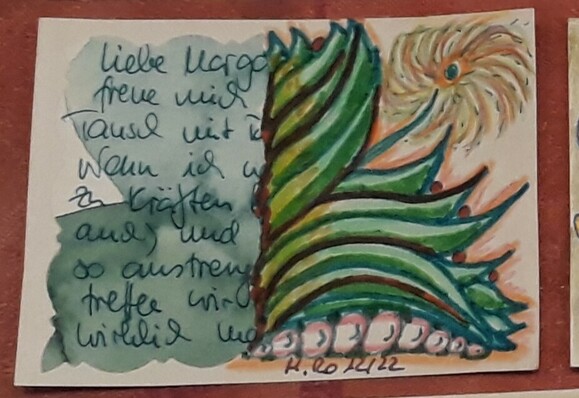 Liebe Marga
freue mich
Tausch mit
Wenn ich
zu Kräften
auch) und
so anstreng
treffen wir
wirklich